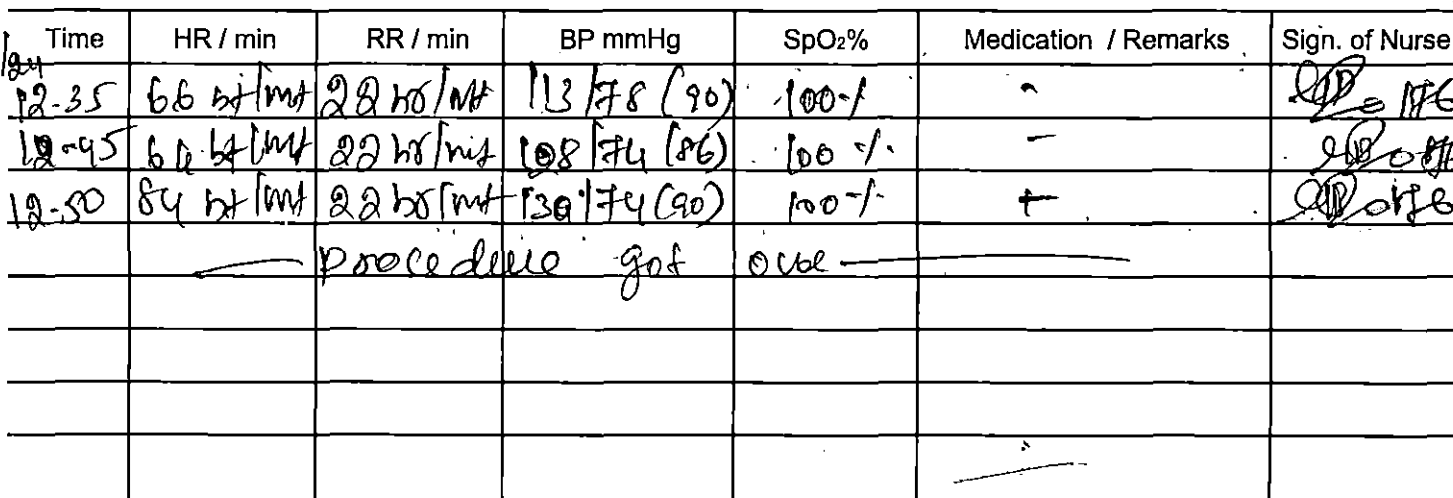 Time HR / min RR / min BP mmHg SpO2% Medication / Remarks Sign. of Nurse
12-35 66 bt/mt 22 br/mt 113/78 (90) 100% -
12-45 64 bt/mt 22 br/mit 108/74 (86) 100 % -
12-50 84 bt/mt 22 br/mt 130/74 (90) 100 %
procedure got over